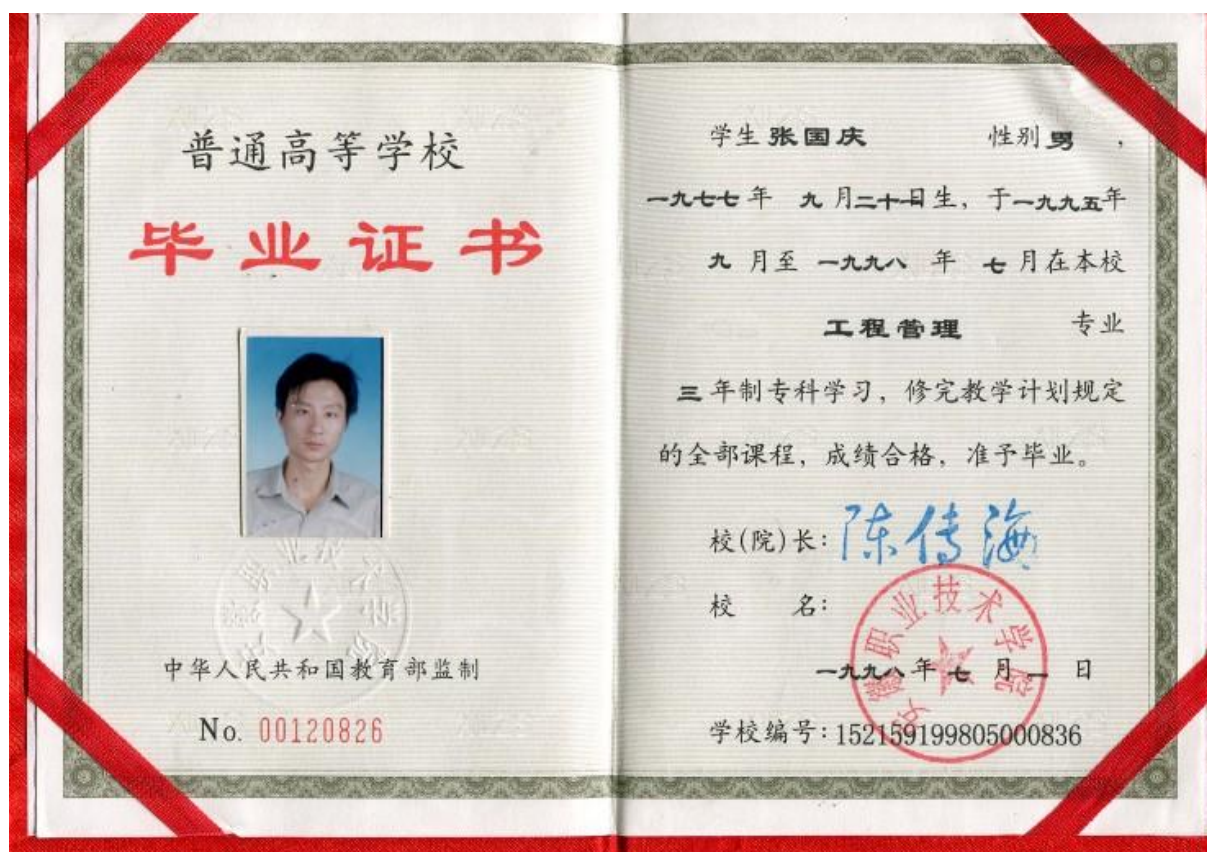 普通高等学校
毕业证书
中华人民共和国教育部监制
No. 00120826
学生 张国庆 性别 男 ,
一九七七年 九 月二十日生, 于一九九五年
九 月至 一九九八 年 七 月在本校
工程管理 专业
三 年制专科学习, 修完教学计划规定
的全部课程, 成绩合格, 准予毕业。
校(院)长: 陈传海
校 名:
安徽职业技术学院
一九九八年 七 月 一 日
学校编号: 152159199805000836